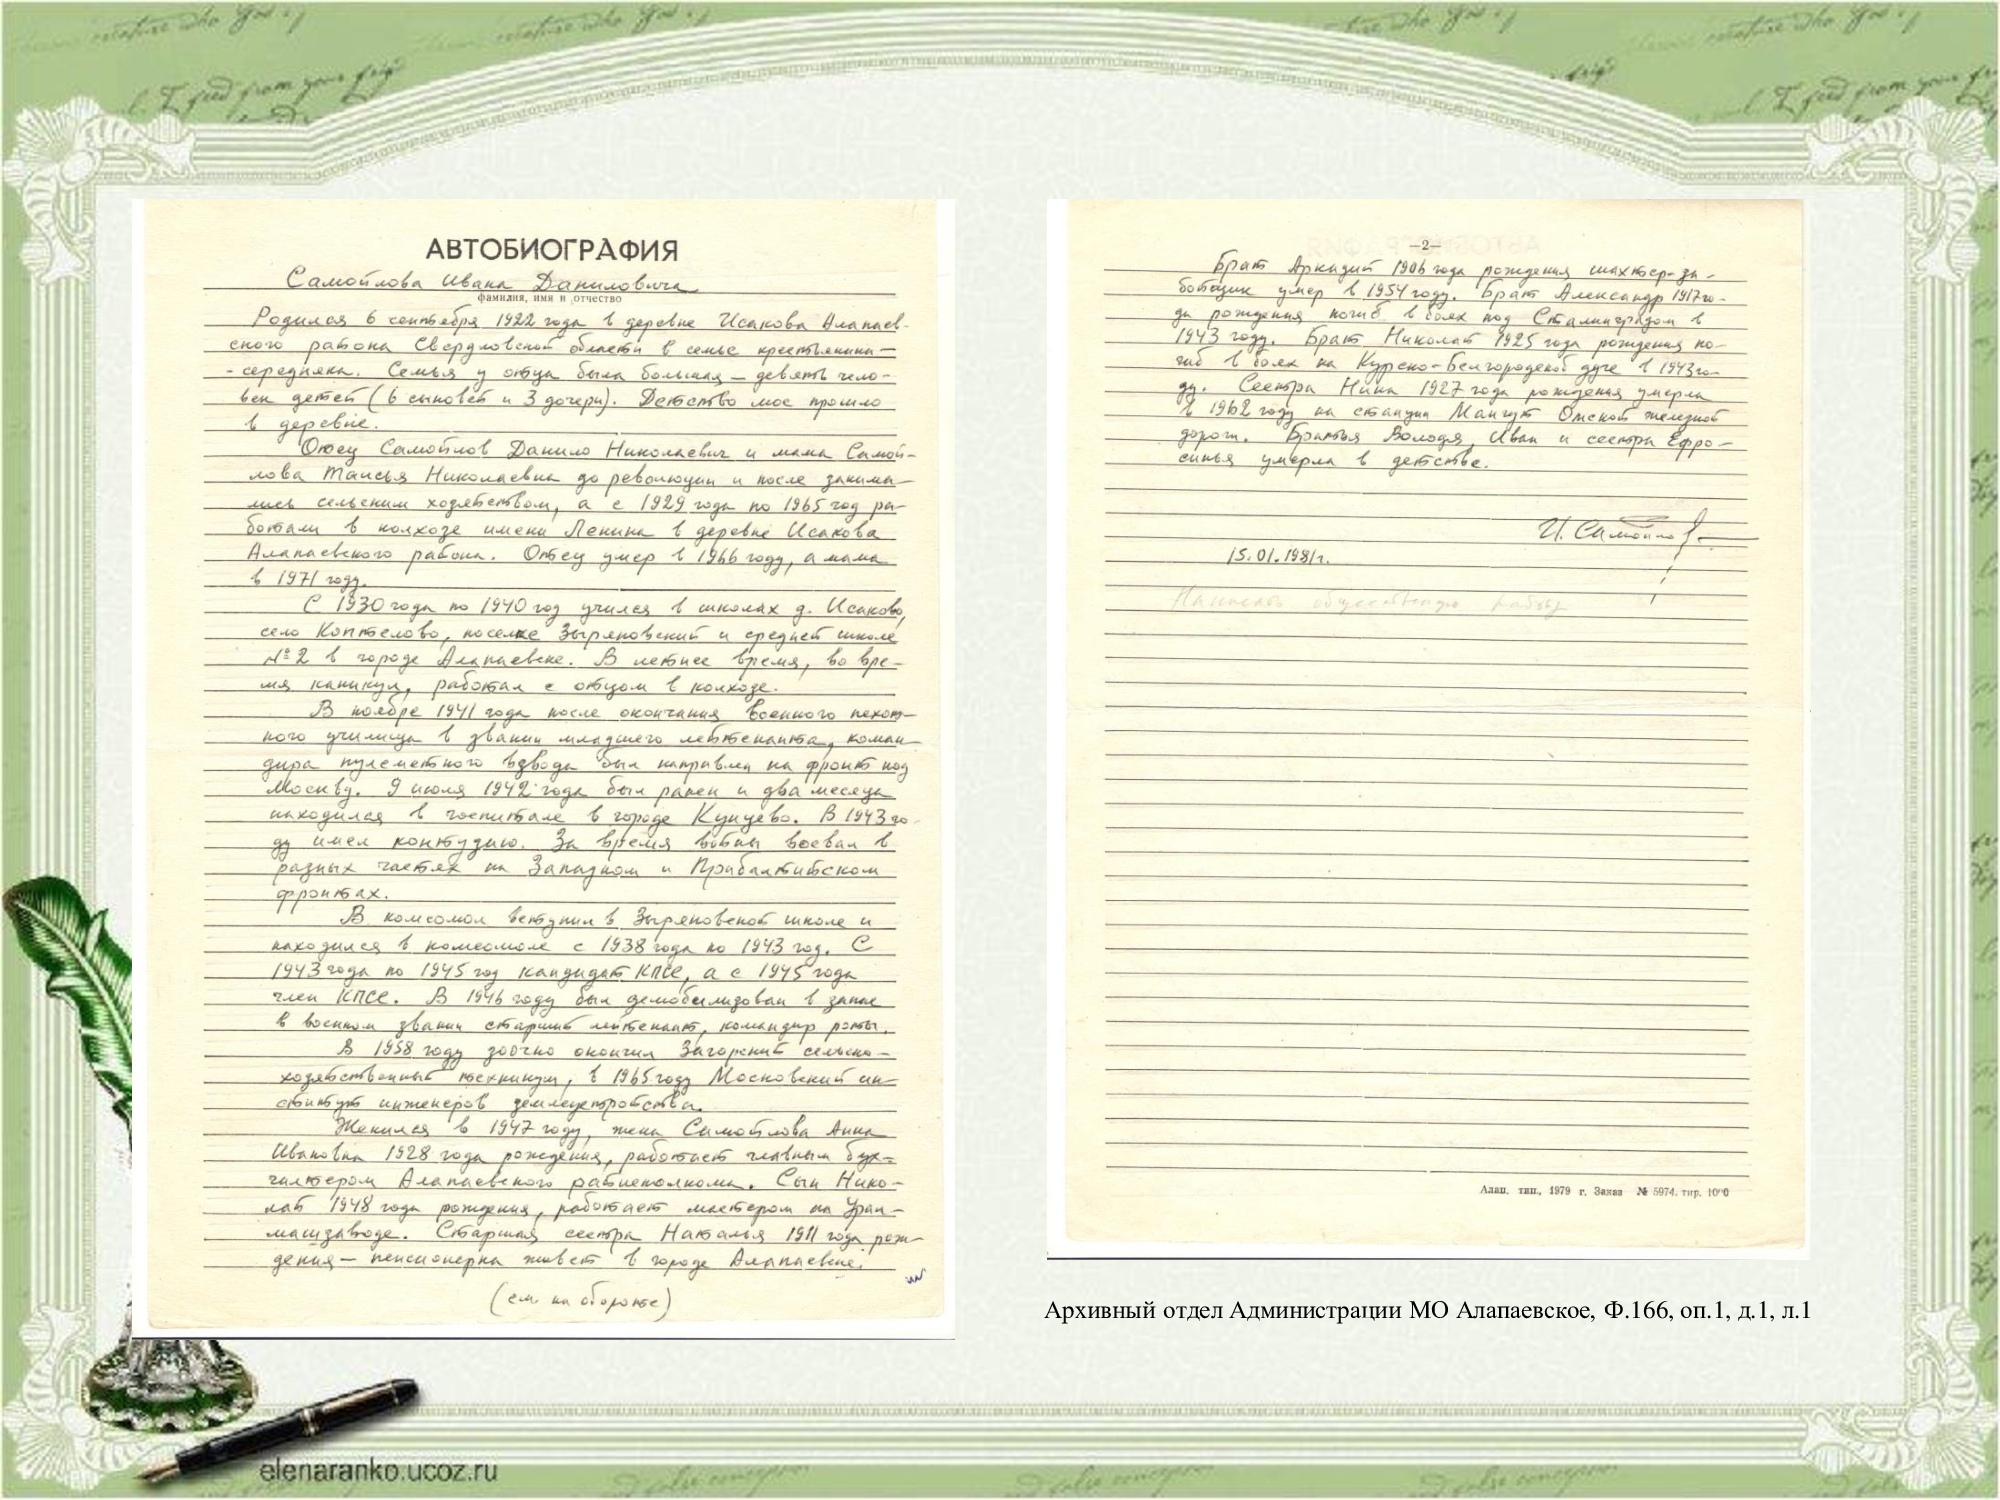 АВТОБИОГРАФИЯ
Самойлова Ивана Даниловича
фамилия, имя и отчество
Родился 6 сентября 1922 года в деревне Исакова Алапаев-
ского района Свердловской области в семье крестьянина-
-середняка. Семья у отца была большая – девять чело-
век детей (6 сыновей и 3 дочери). Детство мое прошло
в деревне.
Отец Самойлов Данило Николаевич и мама Самой-
лова Таисья Николаевна до революции и после занима-
лись сельским хозяйством, а с 1929 года по 1965 год ра-
ботали в колхозе имени Ленина в деревне Исакова
Алапаевского района. Отец умер в 1966 году, а мама
в 1971 году.
С 1930 года по 1940 год учился в школах д. Исаково,
село Коптелово, поселке Зыряновский и средней школе
№ 2 в городе Алапаевске. В летнее время, во вре-
мя каникул, работал с отцом в колхозе.
В ноябре 1941 года после окончания военного пехот-
ного училища в звании младшего лейтенанта, коман-
дира пулеметного взвода был направлен на фронт под
Москву. 9 июля 1942 года был ранен и два месяца
находился в госпитале в городе Кунцево. В 1943 го-
ду имел контузию. За время войны воевал в
разных частях на Западном и Прибалтийском
фронтах.
В комсомол вступил в Зыряновской школе и
находился в комсомоле с 1938 года по 1943 год. С
1943 года по 1945 год кандидат КПСС, а с 1945 года
член КПСС. В 1946 году был демобилизован в запас
в военном звании старший лейтенант, командир роты.
В 1958 году заочно окончил Загорский сельско-
хозяйственный техникум, в 1965 году Московский ин-
ститут инженеров землеустройства.
Женился в 1947 году, жена Самойлова Анна
Ивановна 1928 года рождения, работает главным бух-
галтером Алапаевского райисполкома. Сын Нико-
лай 1948 года рождения, работает мастером на Урал-
машзаводе. Старшая сестра Наталья 1911 года рож-
дения – пенсионерка живет в городе Алапаевске.
(см на обороте)
–2–
Брат Аркадий 1906 года рождения шахтер-за-
бойщик умер в 1954 году. Брат Александр 1917 го-
да рождения погиб в боях под Сталинградом в
1943 году. Брат Николай 1925 года рождения по-
гиб в боях на Курско-Белгородской дуге в 1943 го-
ду. Сестра Нина 1927 года рождения умерла
в 1962 году на станции Мангут Омской железной
дороги. Братья Володя, Иван и сестра Ефро-
синья умерла в детстве.
И. Самойлов
15.01.1981г.
общественную работу
Алап. тип., 1979 г. Заказ № 5974. тир. 1000
Архивный отдел Администрации МО Алапаевское, Ф.166, оп.1, д.1, л.1
elenaranko.ucoz.ru